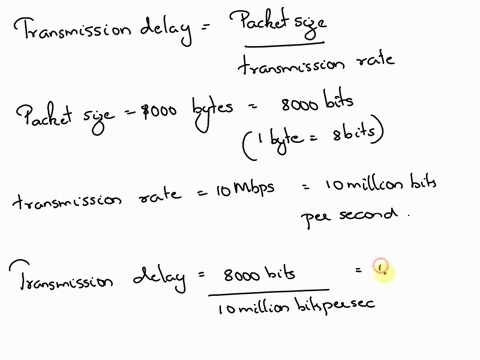 Transmission delay = Packet size
transmission rate
Packet size = 1000 bytes = 8000 bits
(1 byte = 8bits)
transmission rate = 10 Mbps = 10 million bits
per second.
Transmission delay = 8000 bits =
10 million bits per sec